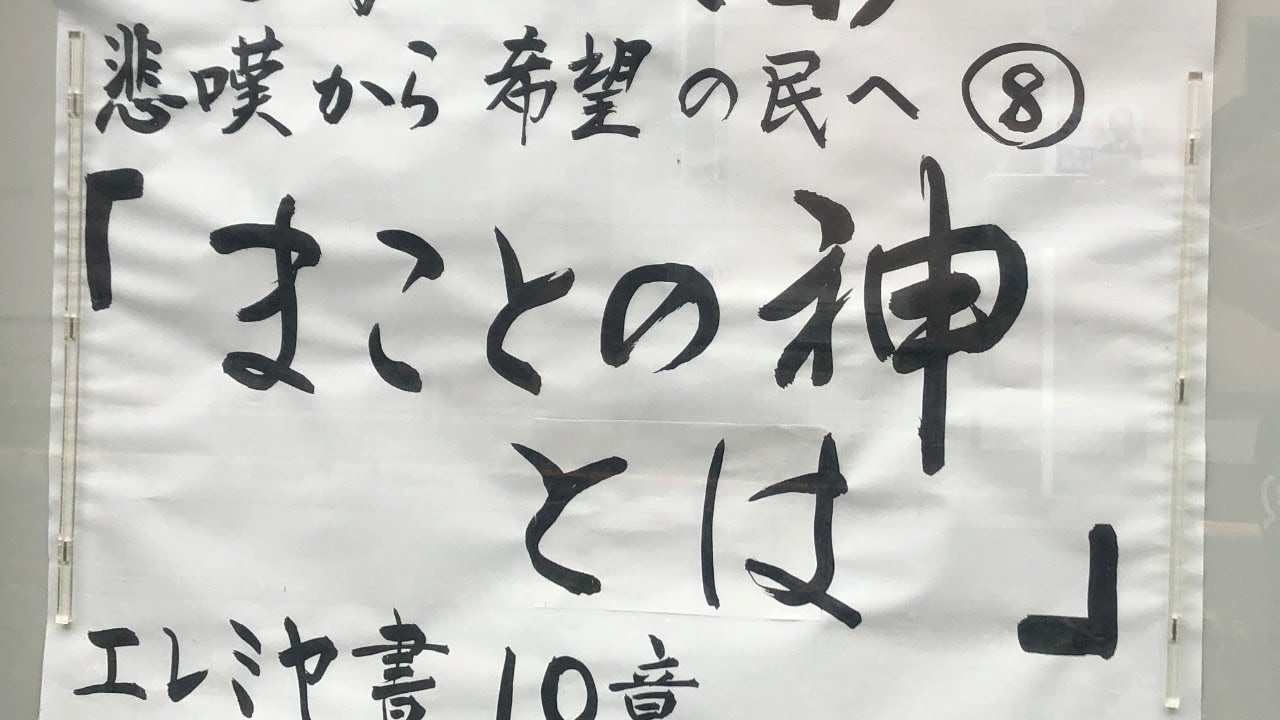 悲嘆から希望の民へ⑧
「まことの神
とは」
エレミヤ書10章